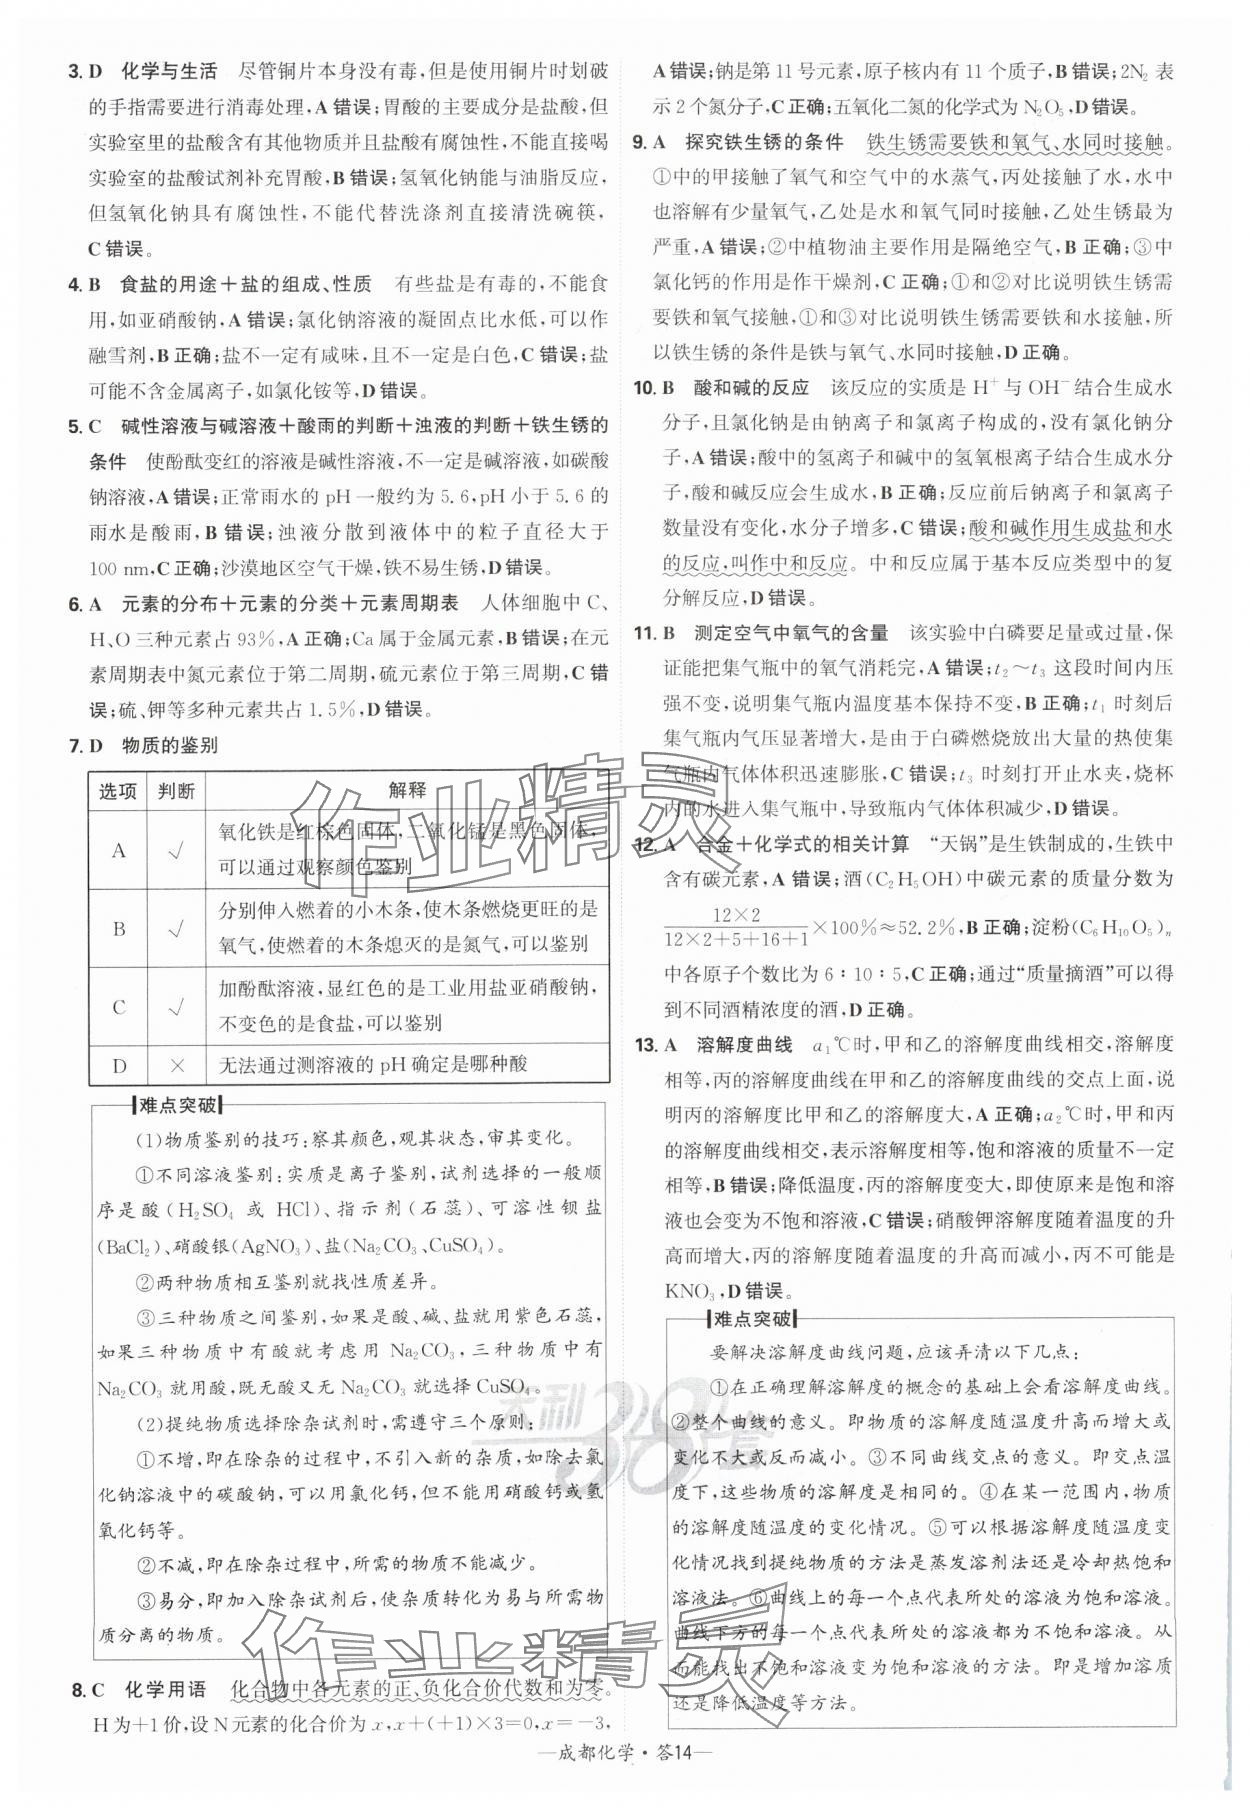 3. D 化学与生活 尽管铜片本身没有毒,但是使用铜片时划破
的手指需要进行消毒处理,A错误;胃酸的主要成分是盐酸,但
实验室里的盐酸含有其他物质并且盐酸有腐蚀性,不能直接喝
实验室的盐酸试剂补充胃酸,B错误;氢氧化钠能与油脂反应,
但氢氧化钠具有腐蚀性,不能代替洗涤剂直接清洗碗筷,
C错误。
4. B 食盐的用途+盐的组成、性质 有些盐是有毒的,不能食
用,如亚硝酸钠,A错误;氯化钠溶液的凝固点比水低,可以作
融雪剂,B正确;盐不一定有咸味,且不一定是白色,C错误;盐
可能不含金属离子,如氯化铵等,D错误。
5. C 碱性溶液与碱溶液+酸雨的判断+浊液的判断+铁生锈的
条件 使酚酞变红的溶液是碱性溶液,不一定是碱溶液,如碳酸
钠溶液,A错误;正常雨水的 pH 一般约为 5.6,pH 小于 5.6 的
雨水是酸雨,B错误;浊液分散到液体中的粒子直径大于
100 nm,C正确;沙漠地区空气干燥,铁不易生锈,D错误。
6. A 元素的分布+元素的分类+元素周期表 人体细胞中 C、
H、O 三种元素占 93%,A正确;Ca 属于金属元素,B错误;在元
素周期表中氮元素位于第二周期,硫元素位于第三周期,C错
误;硫、钾等多种元素共占 1.5%,D错误。
7. D 物质的鉴别
选项 判断 解释
A √ 氧化铁是红棕色固体,二氧化锰是黑色固体,
可以通过观察颜色鉴别
B √ 分别伸入燃着的小木条,使木条燃烧更旺的是
氧气,使燃着的木条熄灭的是氮气,可以鉴别
C √ 加酚酞溶液,显红色的是工业用盐亚硝酸钠,
不变色的是食盐,可以鉴别
D × 无法通过测溶液的 pH 确定是哪种酸
难点突破
(1)物质鉴别的技巧:察其颜色,观其状态,审其变化。
①不同溶液鉴别:实质是离子鉴别,试剂选择的一般顺
序是酸(H₂SO₄ 或 HCl)、指示剂(石蕊)、可溶性钡盐
(BaCl₂)、硝酸银(AgNO₃)、盐(Na₂CO₃、CuSO₄)。
②两种物质相互鉴别就找性质差异。
③三种物质之间鉴别,如果是酸、碱、盐就用紫色石蕊,
如果三种物质中有酸就考虑用 Na₂CO₃,三种物质中有
Na₂CO₃ 就用酸,既无酸又无 Na₂CO₃ 就选择 CuSO₄。
(2)提纯物质选择除杂试剂时,需遵守三个原则:
①不增,即在除杂的过程中,不引入新的杂质,如除去氯
化钠溶液中的碳酸钠,可以用氯化钙,但不能用硝酸钙或氢
氧化钙等。
②不减,即在除杂过程中,所需的物质不能减少。
③易分,即加入除杂试剂后,使杂质转化为易与所需物
质分离的物质。
8. C 化学用语 化合物中各元素的正、负化合价代数和为零。
H 为+1 价,设 N 元素的化合价为 x,x+(+1)×3=0,x=-3,
A错误;钠是第 11 号元素,原子核内有 11 个质子,B错误;2N₂ 表
示 2 个氮分子,C正确;五氧化二氮的化学式为 N₂O₅,D错误。
9. A 探究铁生锈的条件 铁生锈需要铁和氧气、水同时接触。
①中的甲接触了氧气和空气中的水蒸气,丙处接触了水,水中
也溶解有少量氧气,乙处是水和氧气同时接触,乙处生锈最为
严重,A错误;②中植物油主要作用是隔绝空气,B正确;③中
氯化钙的作用是作干燥剂,C正确;①和②对比说明铁生锈需
要铁和氧气接触,①和③对比说明铁生锈需要铁和水接触,所
以铁生锈的条件是铁与氧气、水同时接触,D正确。
10. B 酸和碱的反应 该反应的实质是 H⁺ 与 OH⁻ 结合生成水
分子,且氯化钠是由钠离子和氯离子构成的,没有氯化钠分
子,A错误;酸中的氢离子和碱中的氢氧根离子结合生成水分
子,酸和碱反应会生成水,B正确;反应前后钠离子和氯离子
数量没有变化,水分子增多,C错误;酸和碱作用生成盐和水
的反应,叫作中和反应。中和反应属于基本反应类型中的复
分解反应,D错误。
11. B 测定空气中氧气的含量 该实验中白磷要足量或过量,保
证能把集气瓶中的氧气消耗完,A错误;t₂～t₃ 这段时间内压
强不变,说明集气瓶内温度基本保持不变,B正确;t₁ 时刻后
集气瓶内气压显著增大,是由于白磷燃烧放出大量的热使集
气瓶内气体体积迅速膨胀,C错误;t₃ 时刻打开止水夹,烧杯
内的水进入集气瓶中,导致瓶内气体体积减少,D错误。
12. A 合金+化学式的相关计算 “天锅”是生铁制成的,生铁中
含有碳元素,A错误;酒(C₂H₅OH)中碳元素的质量分数为
12×2/(12×2+5+16+1)×100%≈52.2%,B正确;淀粉(C₆H₁₀O₅)ₙ
中各原子个数比为 6∶10∶5,C正确;通过“质量摘酒”可以得
到不同酒精浓度的酒,D正确。
13. A 溶解度曲线 a₁℃时,甲和乙的溶解度曲线相交,溶解度
相等,丙的溶解度曲线在甲和乙的溶解度曲线的交点上面,说
明丙的溶解度比甲和乙的溶解度大,A正确;a₂℃时,甲和丙
的溶解度曲线相交,表示溶解度相等,饱和溶液的质量不一定
相等,B错误;降低温度,丙的溶解度变大,即使原来是饱和溶
液也会变为不饱和溶液,C错误;硝酸钾溶解度随着温度的升
高而增大,丙的溶解度随着温度的升高而减小,丙不可能是
KNO₃,D错误。
难点突破
要解决溶解度曲线问题,应该弄清以下几点:
①在正确理解溶解度的概念的基础上会看溶解度曲线。
②整个曲线的意义。即物质的溶解度随温度升高而增大或
变化不大或反而减小。③不同曲线交点的意义。即交点温
度下,这些物质的溶解度是相同的。④在某一范围内,物质
的溶解度随温度的变化情况。⑤可以根据溶解度随温度变
化情况找到提纯物质的方法是蒸发溶剂法还是冷却热饱和
溶液法。⑥曲线上的每一个点代表所处的溶液为饱和溶液。
曲线下方的每一个点代表所处的溶液都为不饱和溶液。从
而能找出不饱和溶液变为饱和溶液的方法。即是增加溶质
还是降低温度等方法。
—成都化学·答14—
作业精灵
天利38套
作业精灵